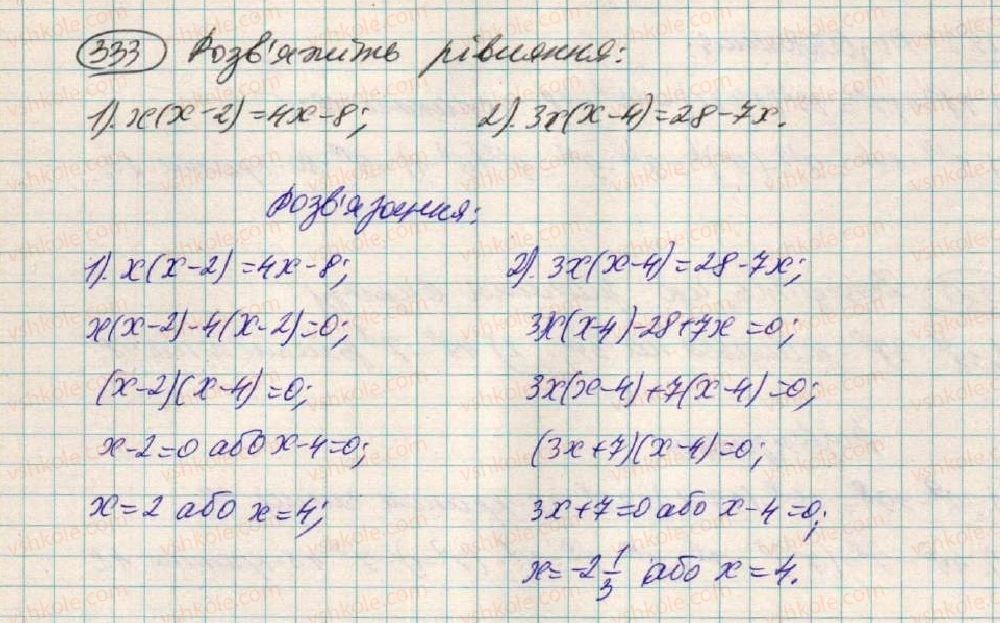 333 Розв'яжіть рівняння:
1). x(x-2)=4x-8; 2). 3x(x-4)=28-7x.
Розв'язання:
1). x(x-2)=4x-8;
x(x-2)-4(x-2)=0;
(x-2)(x-4)=0;
x-2=0 або x-4=0;
x=2 або x=4;
2). 3x(x-4)=28-7x;
3x(x-4)-28+7x=0;
3x(x-4)+7(x-4)=0;
(3x+7)(x-4)=0;
3x+7=0 або x-4=0;
x=-2 1/3 або x=4.
vshkole.com